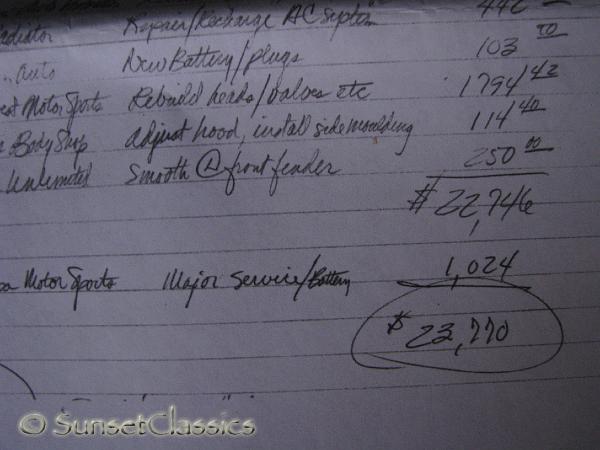 adiator Repair/Recharge AC System 442
Auto New Battery/plugs 103 50
Motor Sports Rebuild heads/valves etc 1794/42
Body Shop adjust hood, install side moulding 114/40
Unlimited Smooth @ front fender 250 00
$22,746
Motor Sports Major Service/Battery 1,024
$23,770
© SunsetClassics